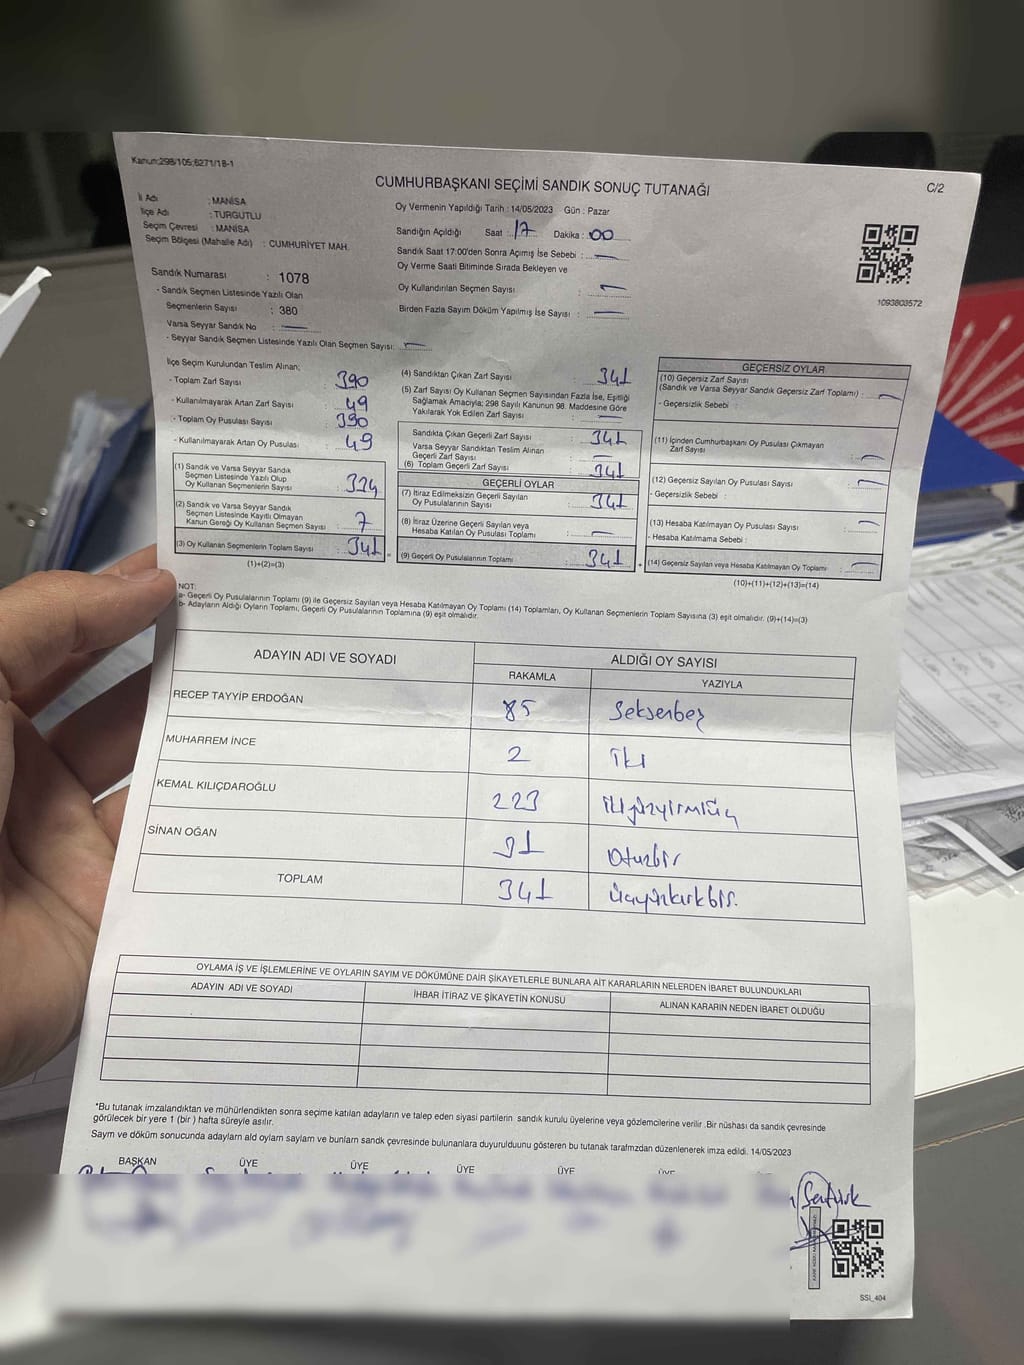 Kanun:298/105;6271/18-1
CUMHURBAŞKANI SEÇİMİ SANDIK SONUÇ TUTANAĞI
C/2
İl Adı : MANİSA
İlçe Adı : TURGUTLU
Seçim Çevresi : MANİSA
Seçim Bölgesi (Mahalle Adı) : CUMHURİYET MAH.
Sandık Numarası : 1078
- Sandık Seçmen Listesinde Yazılı Olan
Seçmenlerin Sayısı : 380
Varsa Seyyar Sandık No : —
- Seyyar Sandık Seçmen Listesinde Yazılı Olan Seçmen Sayısı: —
Oy Vermenin Yapıldığı Tarih : 14/05/2023 Gün : Pazar
Sandığın Açıldığı Saat : 17 Dakika : 00
Sandık Saat 17:00'den Sonra Açımış İse Sebebi : —
Oy Verme Saati Bitiminde Sırada Bekleyen ve
Oy Kullandırılan Seçmen Sayısı : —
Birden Fazla Sayım Döküm Yapılmış İse Sayısı : —
1093803572
İlçe Seçim Kurulundan Teslim Alınan;
- Toplam Zarf Sayısı : 390
- Kullanılmayarak Artan Zarf Sayısı : 49
- Toplam Oy Pusulası Sayısı : 390
- Kullanılmayarak Artan Oy Pusulası : 49
(1) Sandık ve Varsa Seyyar Sandık
Seçmen Listesinde Yazılı Olup
Oy Kullanan Seçmenlerin Sayısı : 334
(2) Sandık ve Varsa Seyyar Sandık
Seçmen Listesinde Kayıtlı Olmayan
Kanun Gereği Oy Kullanan Seçmen Sayısı : 7
(3) Oy Kullanan Seçmenlerin Toplam Sayısı : 341
(1)+(2)=(3)
(4) Sandıktan Çıkan Zarf Sayısı : 341
(5) Zarf Sayısı Oy Kullanan Seçmen Sayısından Fazla İse, Eşitliği
Sağlamak Amacıyla; 298 Sayılı Kanunun 98. Maddesine Göre
Yakılarak Yok Edilen Zarf Sayısı : —
Sandıkta Çıkan Geçerli Zarf Sayısı : 341
Varsa Seyyar Sandıktan Teslim Alınan
Geçerli Zarf Sayısı : —
(6) Toplam Geçerli Zarf Sayısı : 341
GEÇERLİ OYLAR
(7) İtiraz Edilmeksizin Geçerli Sayılan
Oy Pusulalarının Sayısı : 341
(8) İtiraz Üzerine Geçerli Sayılan veya
Hesaba Katılan Oy Pusulası Toplamı : —
(9) Geçerli Oy Pusulalarının Toplamı : 341
GEÇERSİZ OYLAR
(10) Geçersiz Zarf Sayısı
(Sandık ve Varsa Seyyar Sandık Geçersiz Zarf Toplamı) : —
- Geçersizlik Sebebi :
(11) İçinden Cumhurbaşkanı Oy Pusulası Çıkmayan
Zarf Sayısı : —
(12) Geçersiz Sayılan Oy Pusulası Sayısı : —
- Geçersizlik Sebebi :
(13) Hesaba Katılmayan Oy Pusulası Sayısı : —
- Hesaba Katılmama Sebebi :
(14) Geçersiz Sayılan veya Hesaba Katılmayan Oy Toplamı : —
(10)+(11)+(12)+(13)=(14)
NOT:
a- Geçerli Oy Pusulalarının Toplamı (9) ile Geçersiz Sayılan veya Hesaba Katılmayan Oy Toplamı (14) Toplamları, Oy Kullanan Seçmenlerin Toplam Sayısına (3) eşit olmalıdır. (9)+(14)=(3)
b- Adayların Aldığı Oyların Toplamı, Geçerli Oy Pusulalarının Toplamına (9) eşit olmalıdır.
ADAYIN ADI VE SOYADI ALDIĞI OY SAYISI
RAKAMLA YAZIYLA
RECEP TAYYİP ERDOĞAN 85 Seksenbeş
MUHARREM İNCE 2 iki
KEMAL KILIÇDAROĞLU 223 ikiyüzyirmiüç
SİNAN OĞAN 31 Otuzbir
TOPLAM 341 üçyüzkırkbir.
OYLAMA İŞ VE İŞLEMLERİNE VE OYLARIN SAYIM VE DÖKÜMÜNE DAİR ŞİKAYETLERLE BUNLARA AİT KARARLARIN NELERDEN İBARET BULUNDUKLARI
ADAYIN ADI VE SOYADI İHBAR İTİRAZ VE ŞİKAYETİN KONUSU ALINAN KARARIN NEDEN İBARET OLDUĞU
*Bu tutanak imzalandıktan ve mühürlendikten sonra seçime katılan adayların ve talep eden siyasi partilerin sandık kurulu üyelerine veya gözlemcilerine verilir .Bir nüshası da sandık çevresinde
görülecek bir yere 1 (bir ) hafta süreyle asılır.
Sayım ve döküm sonucunda adayların ald oyların saylam ve bunlarn sandk çevresinde bulunanlara duyurulduunu gösteren bu tutanak tarafmzdan düzenlenerek imza edildi. 14/05/2023
BAŞKAN ÜYE ÜYE ÜYE ÜYE ÜYE
Sertürk
SSI_404